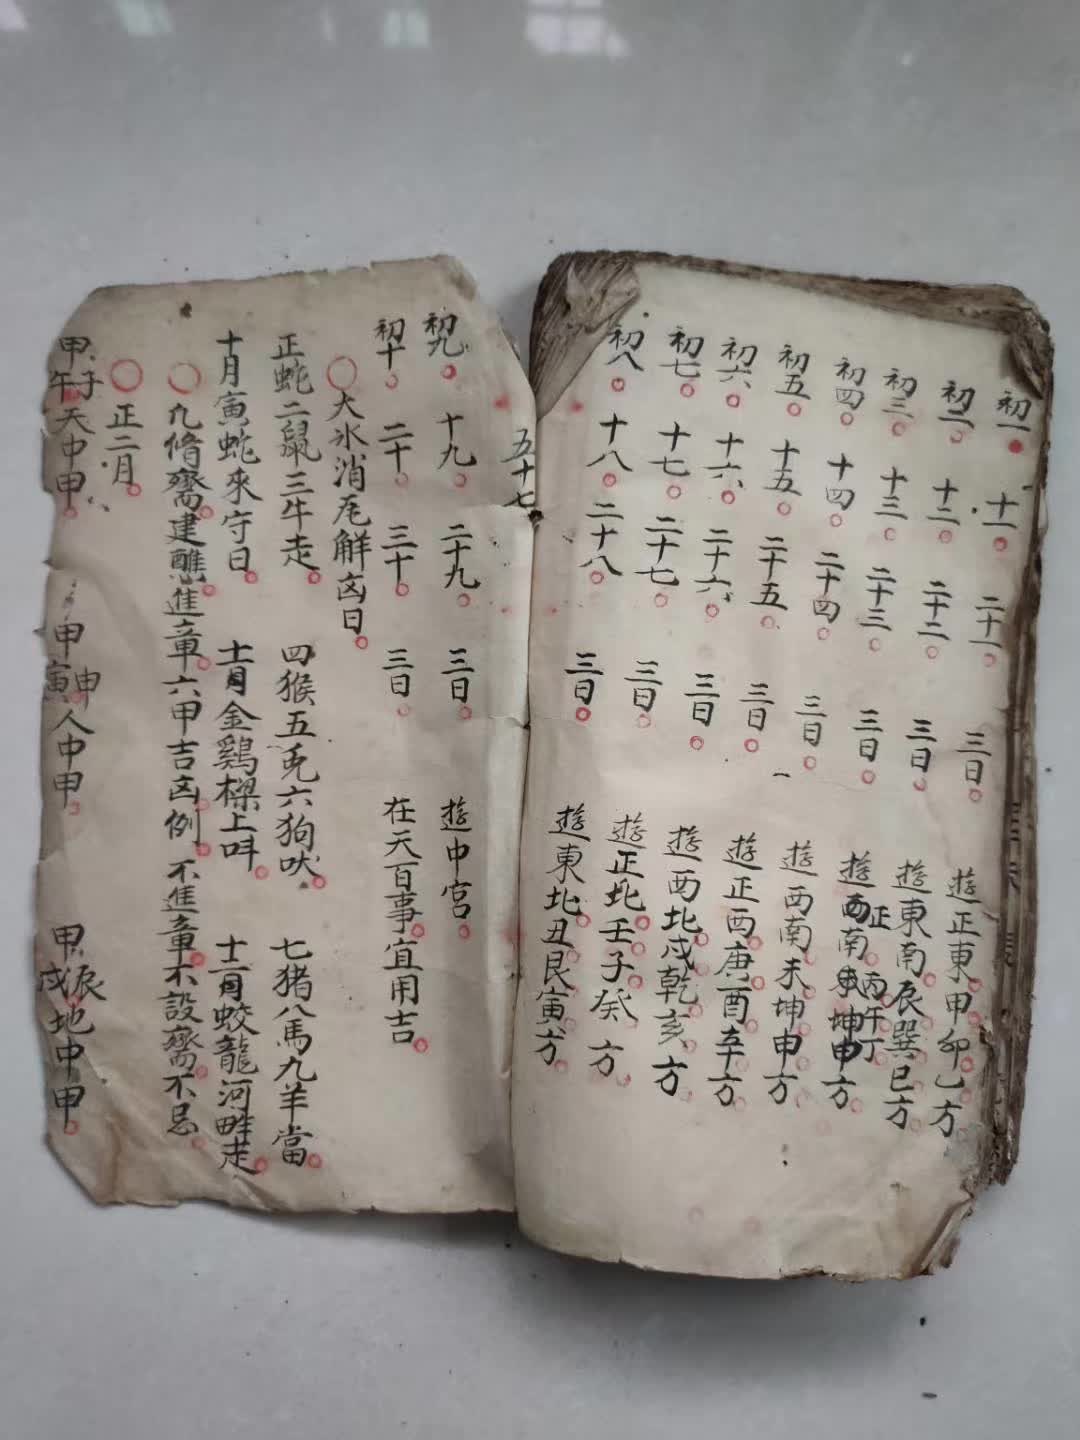 初一 十一 二十一 三日 遊正東甲卯乙方
初二 十二 二十二 三日 遊東南辰巽巳方
初三 十三 二十三 三日 遊正西南丙午丁未坤申方
初四 十四 二十四 三日 遊西南未坤申方
初五 十五 二十五 三日 遊正西庚酉辛方
初六 十六 二十六 三日 遊西北戌乾亥方
初七 十七 二十七 三日 遊正北壬子癸方
初八 十八 二十八 三日 遊東北丑艮寅方
五十七
初九 十九 二十九 三日 遊中宮
初十 二十 三十 三日 在天百事宜用吉
大氷消瓦解凶日
正蛇二鼠三牛走 四猴五兎六狗吠 七猪八馬九羊當
十月寅蛇來守日 十一月金鷄樑上呌 十二月蛟龍河畔走
凡脩齋建醮進章六甲吉凶例 不進章不設齋不忌
正二月
甲子午天中甲 甲申寅人中甲 甲辰戌地中甲